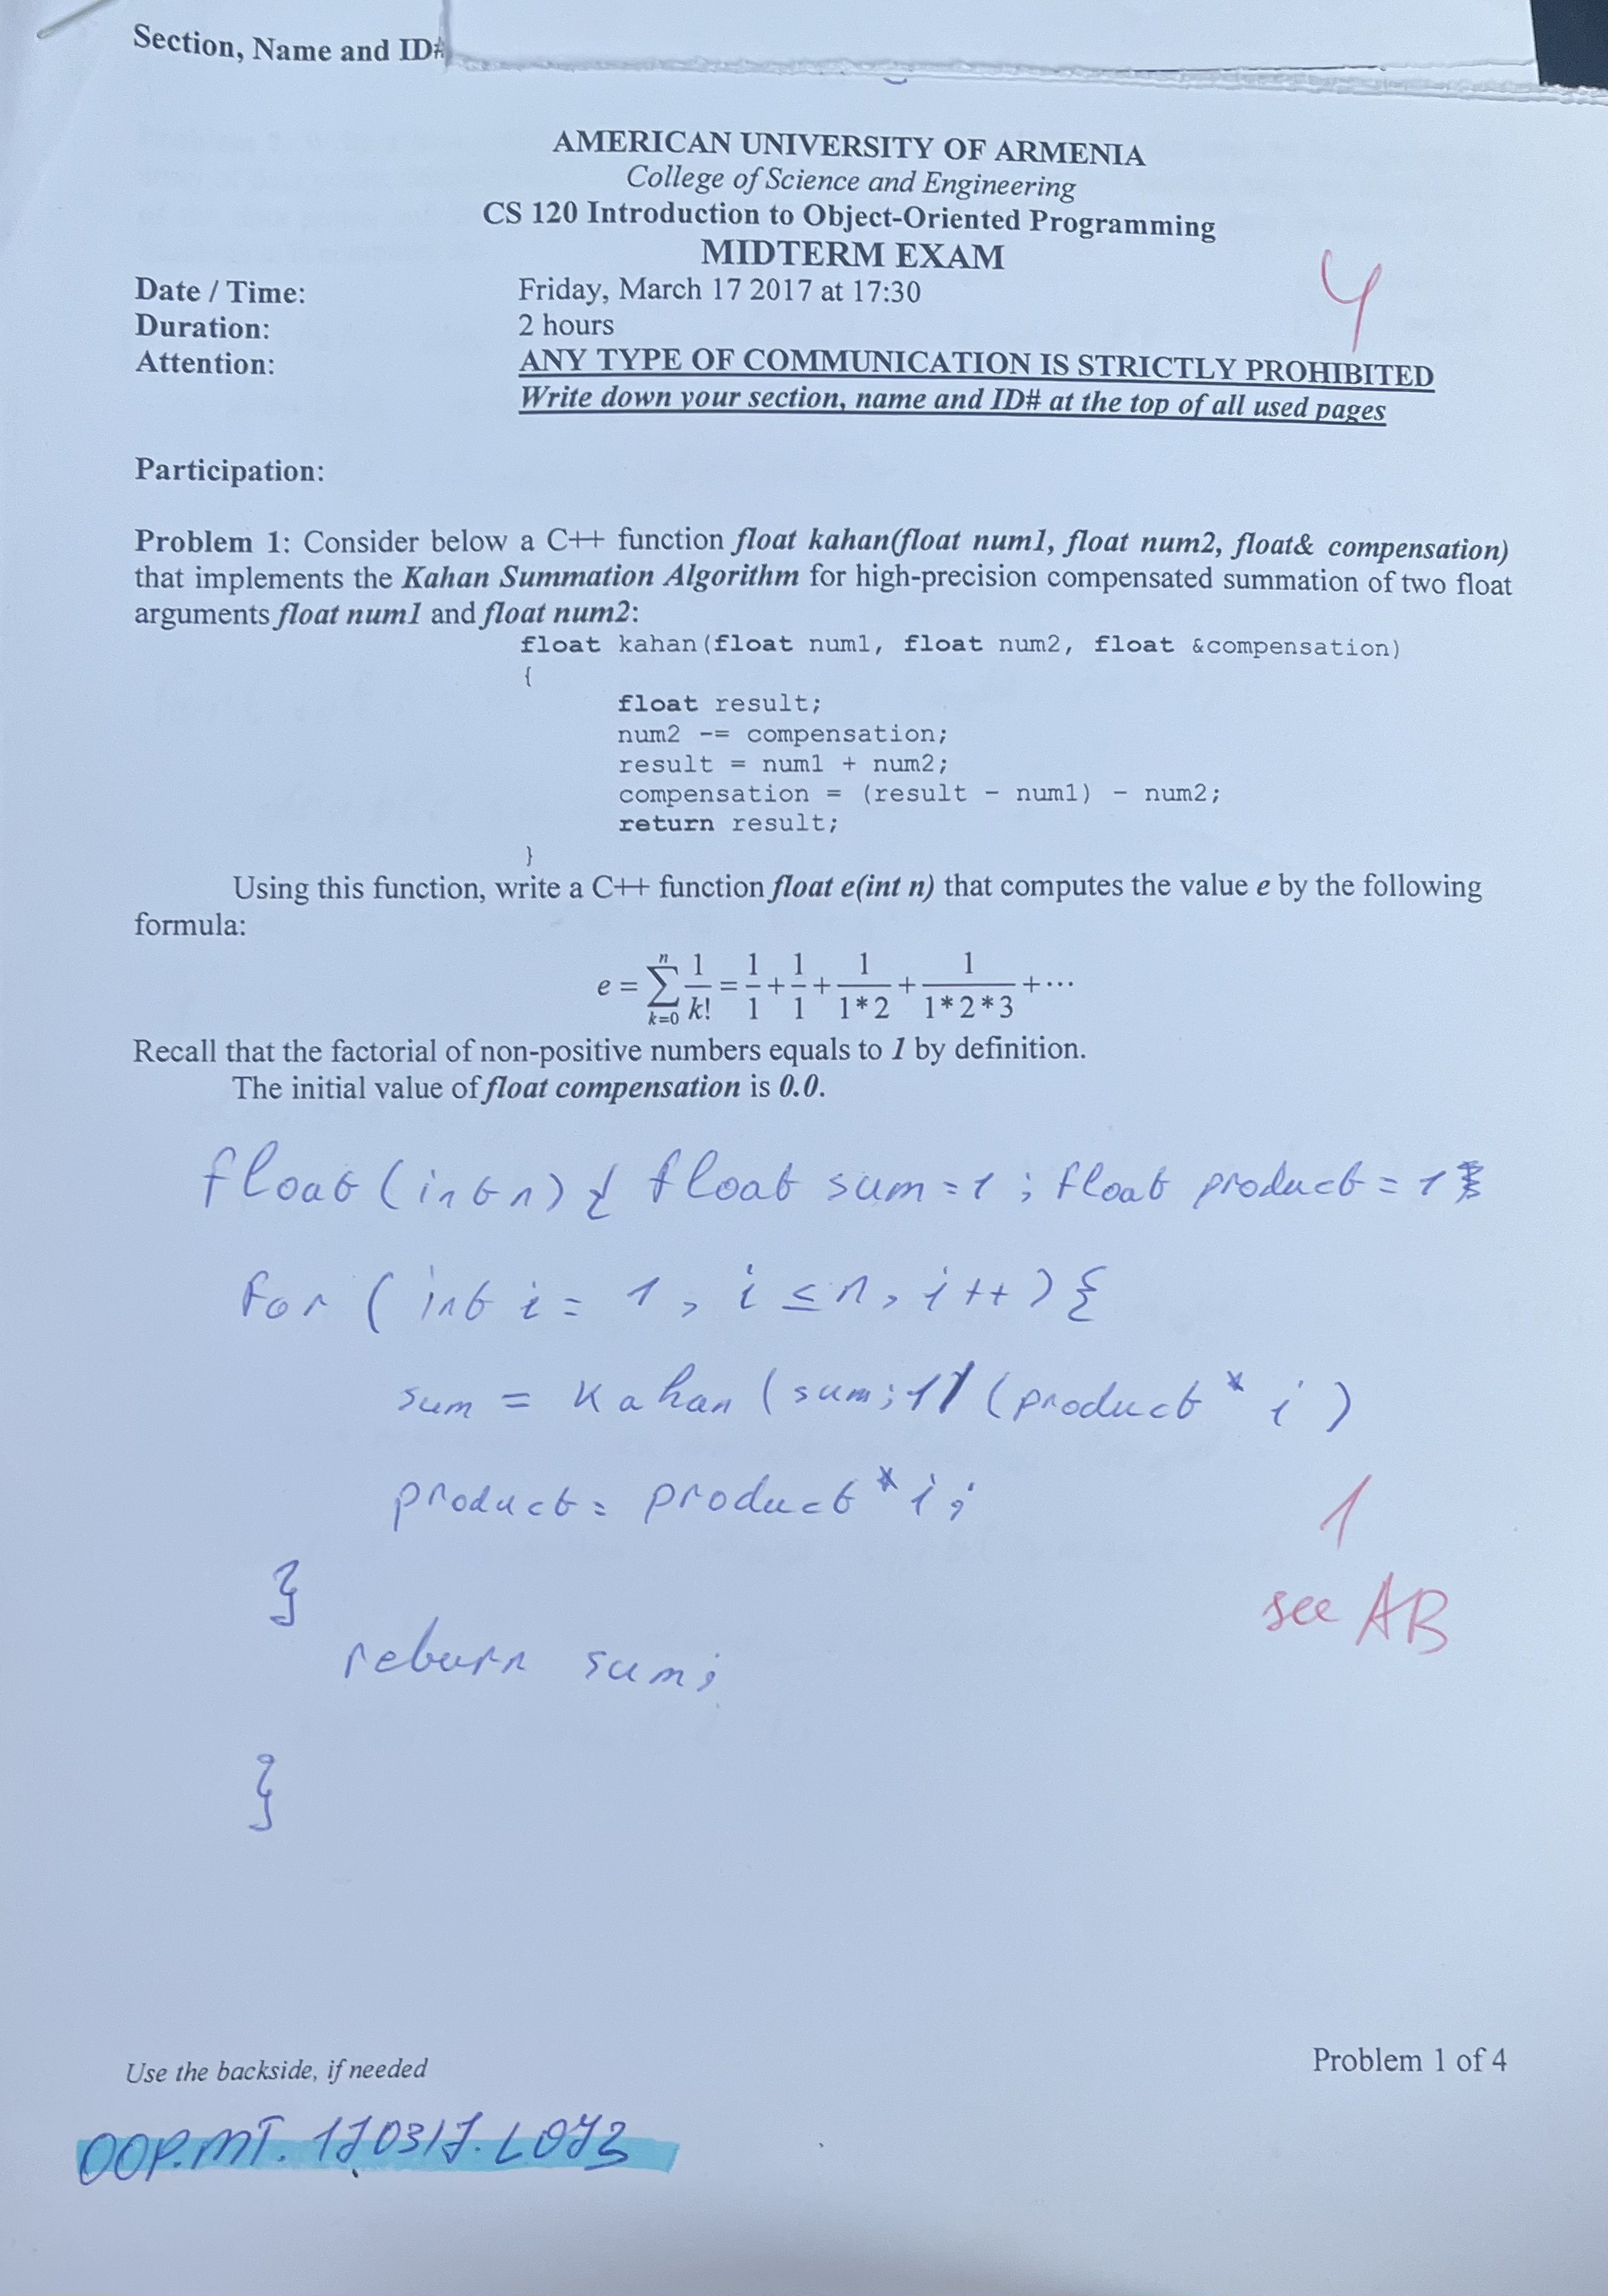 Section, Name and ID#
AMERICAN UNIVERSITY OF ARMENIA
College of Science and Engineering
CS 120 Introduction to Object-Oriented Programming
MIDTERM EXAM
4
Date / Time: Friday, March 17 2017 at 17:30
Duration: 2 hours
Attention: ANY TYPE OF COMMUNICATION IS STRICTLY PROHIBITED
Write down your section, name and ID# at the top of all used pages
Participation:
Problem 1: Consider below a C++ function float kahan(float num1, float num2, float& compensation)
that implements the Kahan Summation Algorithm for high-precision compensated summation of two float
arguments float num1 and float num2:
float kahan(float num1, float num2, float &compensation)
{
float result;
num2 -= compensation;
result = num1 + num2;
compensation = (result - num1) - num2;
return result;
}
Using this function, write a C++ function float e(int n) that computes the value e by the following
formula:
e = ∑_{k=0}^{n} 1/k! = 1/1 + 1/1 + 1/(1*2) + 1/(1*2*3) + ⋯
Recall that the factorial of non-positive numbers equals to 1 by definition.
The initial value of float compensation is 0.0.
float (int n) { float sum = 1 ; float product = 1
for ( int i = 1 , i ≤ n , i ++ ) {
sum = kahan ( sum ; 1 / ( product * i )
product = product * i ;
1
}
see AB
return sum ;
}
Use the backside, if needed
Problem 1 of 4
OOP.MT. 170317. L073